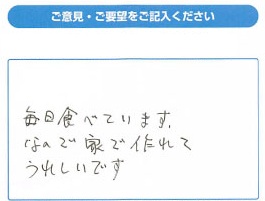 ご意見・ご要望をご記入ください
毎日食べています。
なので家で作れて
うれしいです